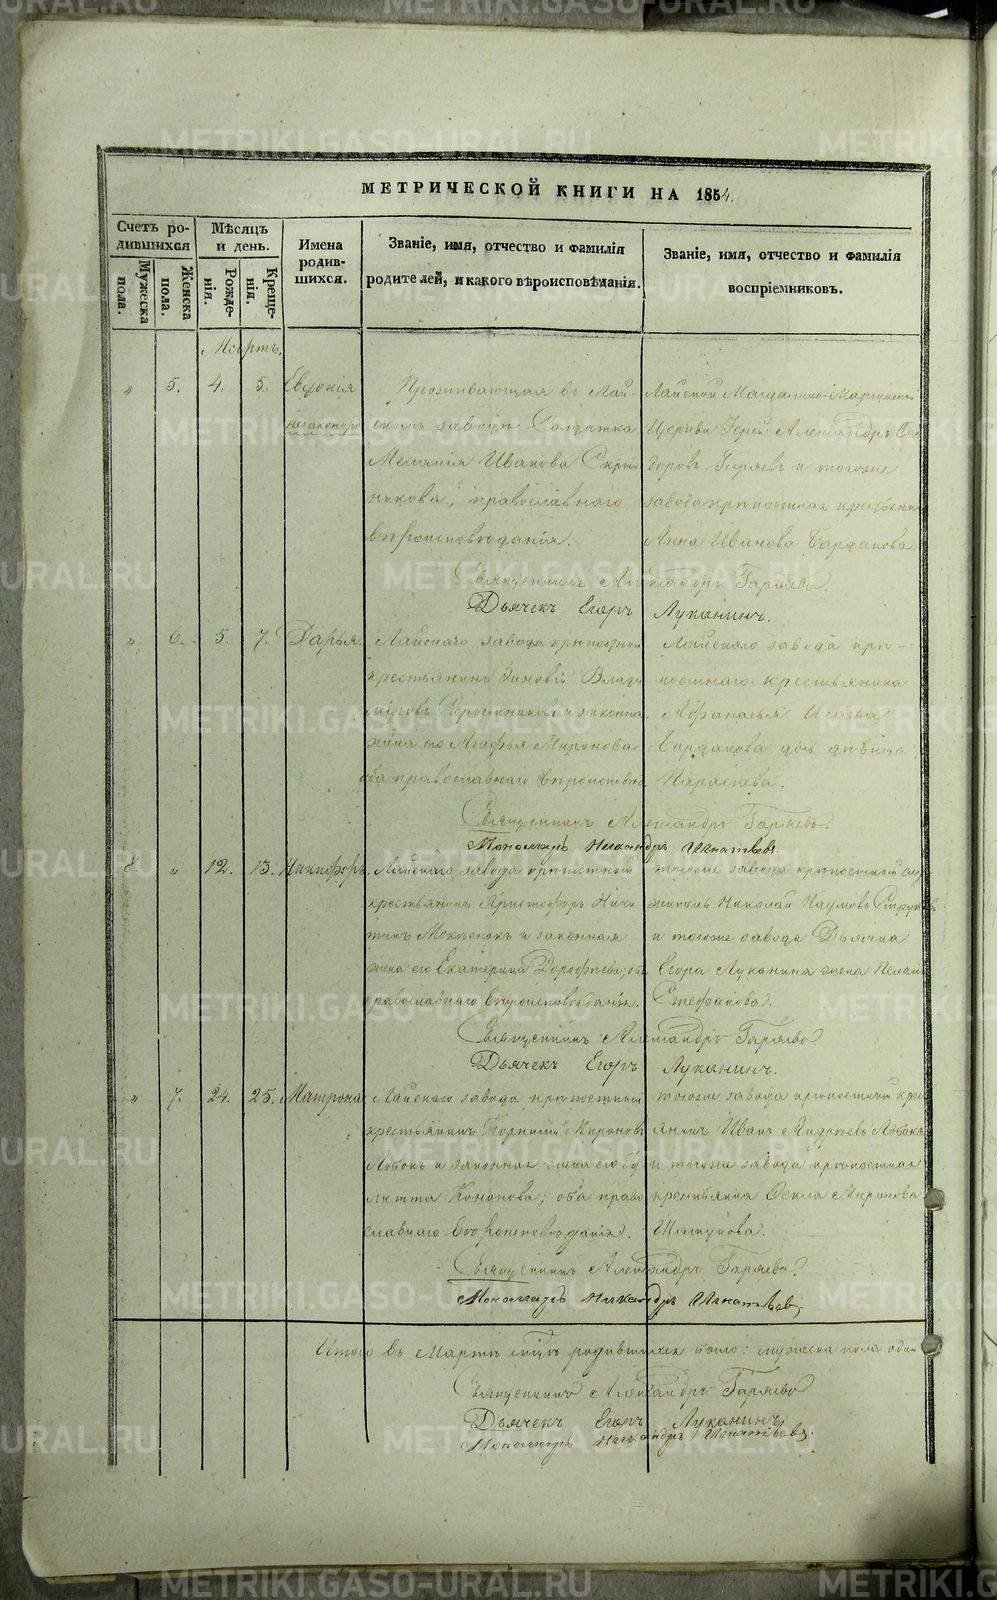 МЕТРИЧЕСКОЙ КНИГИ НА 1854.
Счетъ ро-
дившихся
Мужеска пола.
Женска пола.
Мѣсяцъ
и день.
Рожде-
нія.
Креще-
нія.
Имена
родив-
шихся.
Званіе, имя, отчество и фамилія
родителей, и какого вѣроисповѣданія.
Званіе, имя, отчество и фамилія
воспріемниковъ.
Мартъ.
" 5. 4. 5. Евдокія
Проживающая въ Лай-
скомъ заводѣ Солдатка
Меланія Иванова
никова, православнаго
вѣроисповѣданія.
Лайской
Церкви Іерей Александръ
доровъ Гаряевъ и тогоже
завода крѣпостная
Анна Иванова Бардакова
Священникъ Александръ Гаряевъ
Дьячекъ Егоръ Луканинъ.
" 6. 5. 7. Дарья.
Лайскаго завода крѣпостной
крестьянинъ Зиновій Влади
міровъ и законная
жена его Агафья Миронова
оба православнаго
Лайскаго завода крѣ-
постнаго крестьянина
Бардакова дочь дѣвица
Священникъ Александръ Гаряевъ.
Пономарь Никандръ Игнатьевъ.
" 12. 13. Никифоръ.
Лайскаго завода крѣпостной
крестьянинъ Христофоръ Ники
тинъ и законная
жена его Екатерина Дорофѣева; оба
православнаго вѣроисповѣданія.
тогоже завода крѣпостной слу
житель Николай Наумовъ
и тогоже завода Дьячка
Егора Луканина жена Пелагія
Стефанова.
Священникъ Александръ Гаряевъ
Дьячекъ Егоръ Луканинъ.
" 7. 24. 25. Матрона
Лайскаго завода крѣпостный
крестьянинъ Корнилій Мироновъ
и законная жена его Іу
литта Кононова; оба право
славнаго вѣроисповѣданія.
тогоже завода крѣпостный крест
янинъ Иванъ Андреевъ
и тогоже завода крѣпостная
Миронова
Священникъ Александръ Гаряевъ.
Пономарь Никандръ Игнатьевъ.
Итого въ Мартѣ родившихся было: мужеска пола один
Священникъ Александръ Гаряевъ
Дьячекъ Егоръ Луканинъ
Пономарь Никандръ Игнатьевъ.
METRIKI.GASO-URAL.RU